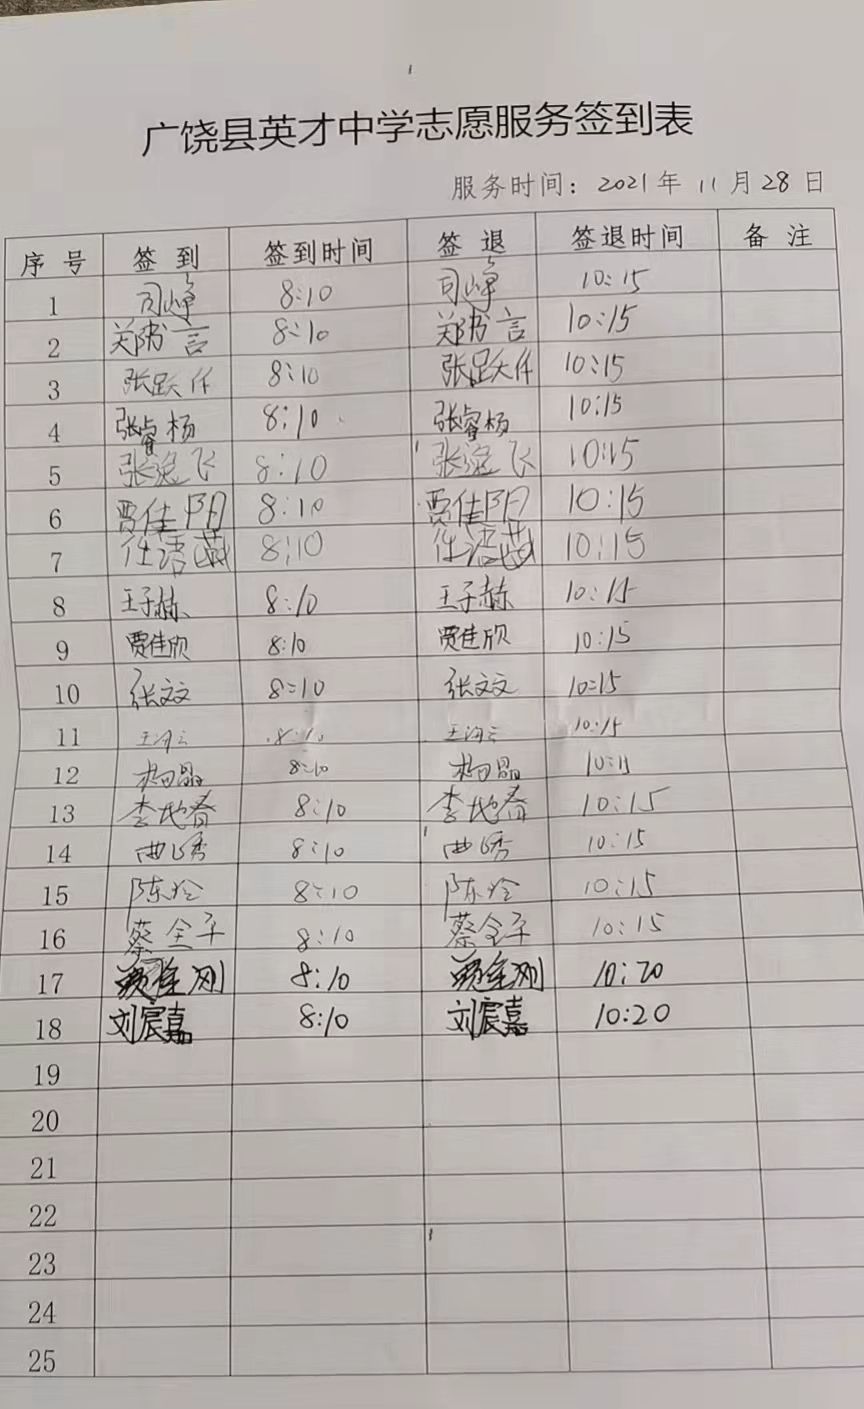 广饶县英才中学志愿服务签到表
服务时间：2021年 11月28日
序号 签到 签到时间 签退 签退时间 备注
1 司峥 8:10 司峥 10:15
2 郑书言 8:10 郑书言 10:15
3 张跃仟 8:10 张跃仟 10:15
4 张睿杨 8:10 张睿杨 10:15
5 张逸飞 8:10 张逸飞 10:15
6 贾佳阳 8:10 贾佳阳 10:15
7 任语茜 8:10 任语茜 10:15
8 王子赫 8:10 王子赫 10:15
9 贾佳欣 8:10 贾佳欣 10:15
10 张文文 8:10 张文文 10:15
11 8:10 10:15
12 杨晶 8:10 杨晶 10:15
13 李地春 8:10 李地春 10:15
14 8:10 10:15
15 陈玲 8:10 陈玲 10:15
16 蔡全平 8:10 蔡全平 10:15
17 8:10 10:20
18 刘宸嘉 8:10 刘宸嘉 10:20
19
20
21
22
23
24
25